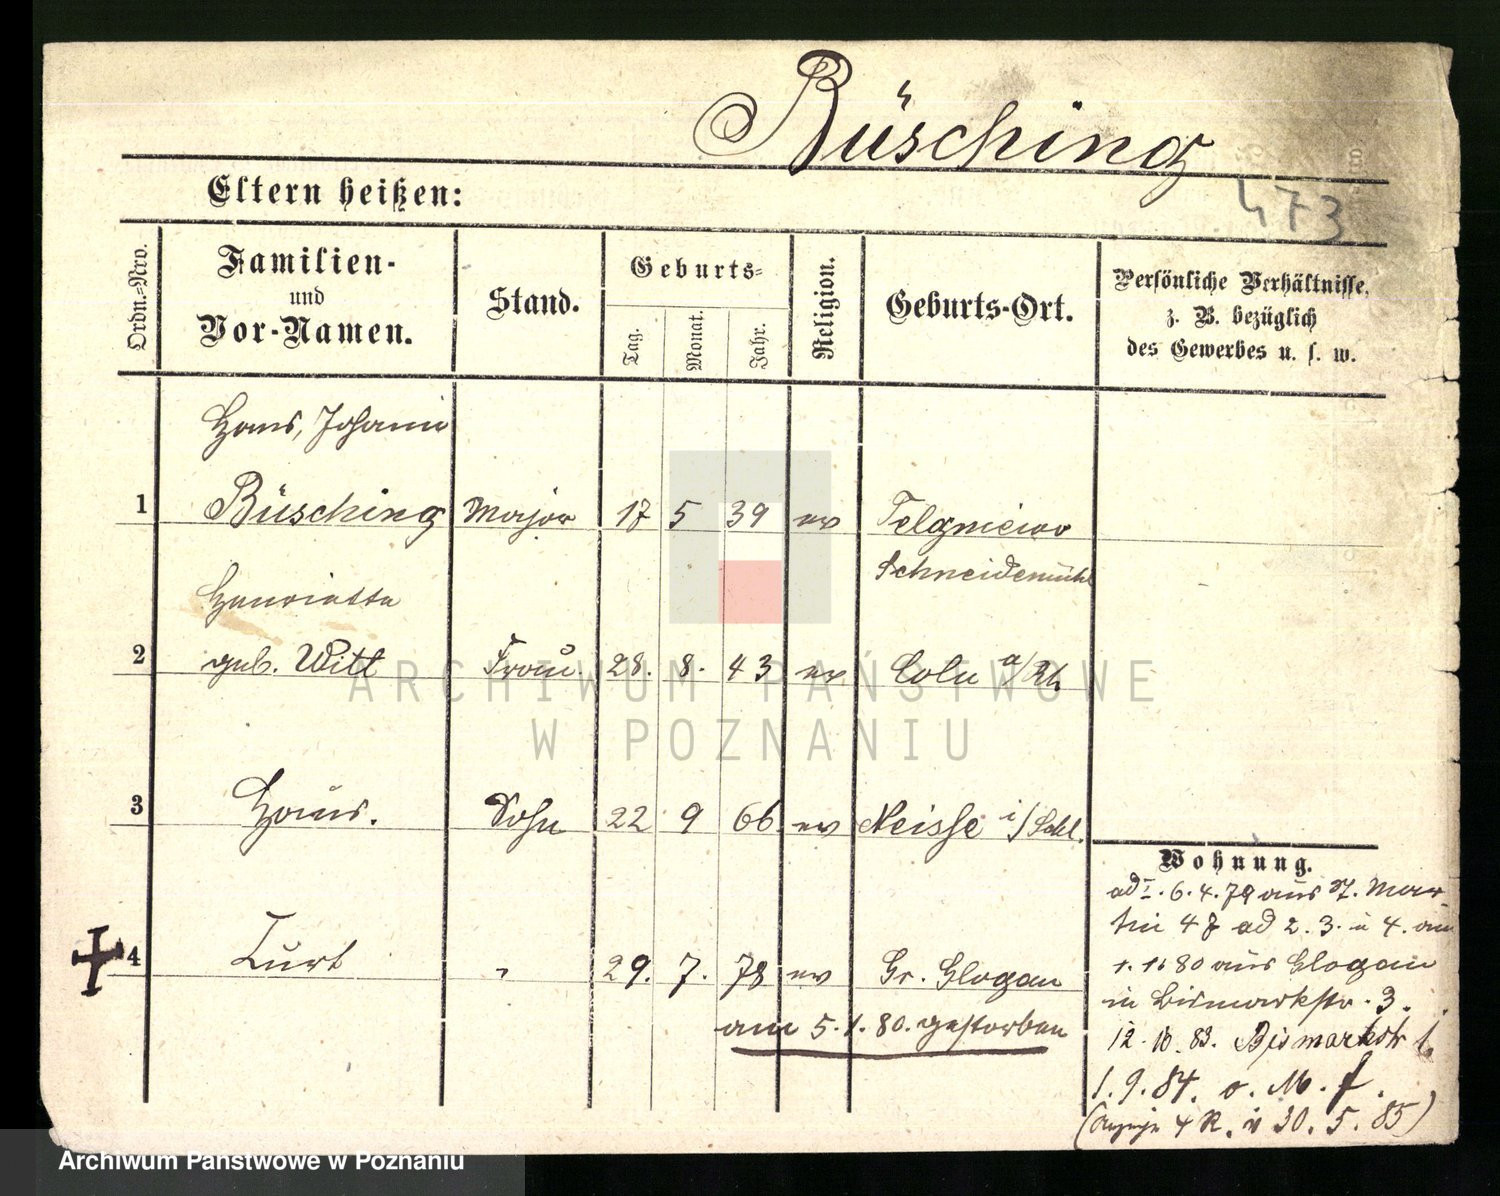 Büsching
473
Eltern heißen:
Ordn.-Nro.
Familien-
und
Vor-Namen.
Stand.
Geburts-
Tag.
Monat.
Jahr.
Religion.
Geburts-Ort.
Persönliche Verhältnisse,
z. B. bezüglich
des Gewerbes u. s. w.
Hans, Johann
1 Büsching Major 17 5 39 ev
Schneidemühl
Henriette
2 geb. Witt Frau 28. 8. 43 ev Coln a/Rh
3 Hans. Sohn 22 9 66 ev Neisse i/Schl.
4 Curt " 29. 7. 78 ev Gr. Glogau
am 5.1.80. gestorben
Wohnung.
ad I. 6.4.79 aus St. Mar
tin 47 ad 2. 3. u 4. am
1. 80 aus Glogau
in Bismarkstr. 3.
12. 10. 83. Bismarkstr 1.
1. 9. 84. o. M. f.
4 R. v 30. 5. 85)
ARCHIWUM PAŃSTWOWE
W POZNANIU
Archiwum Państwowe w Poznaniu